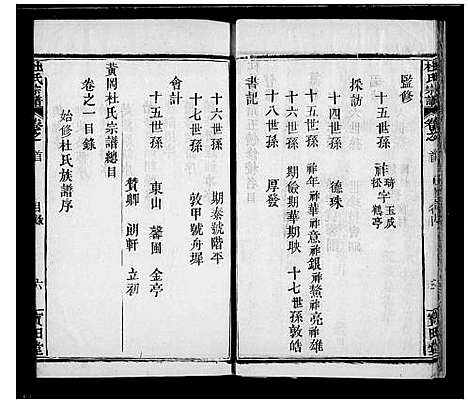 監修
十五世孫 祚琦字玉威 祚松 鶴亭
採訪
十四世孫 德珠
十五世孫 祚年祚華祚意祚銀祚鰲祚亮祚雄
十六世孫 期儉期華期映 十七世孫敦皓
十八世孫 厚發
書記
十六世孫 期泰號階平
十七世孫 敦甲號舟墀
會計
十五世孫 東山 馨圃 金亭
贊卿 朗軒 立初
黃岡杜氏宗譜總目
卷之一目錄
始修杜氏族譜序
杜氏宗譜
卷之首
目錄
六
寶田堂